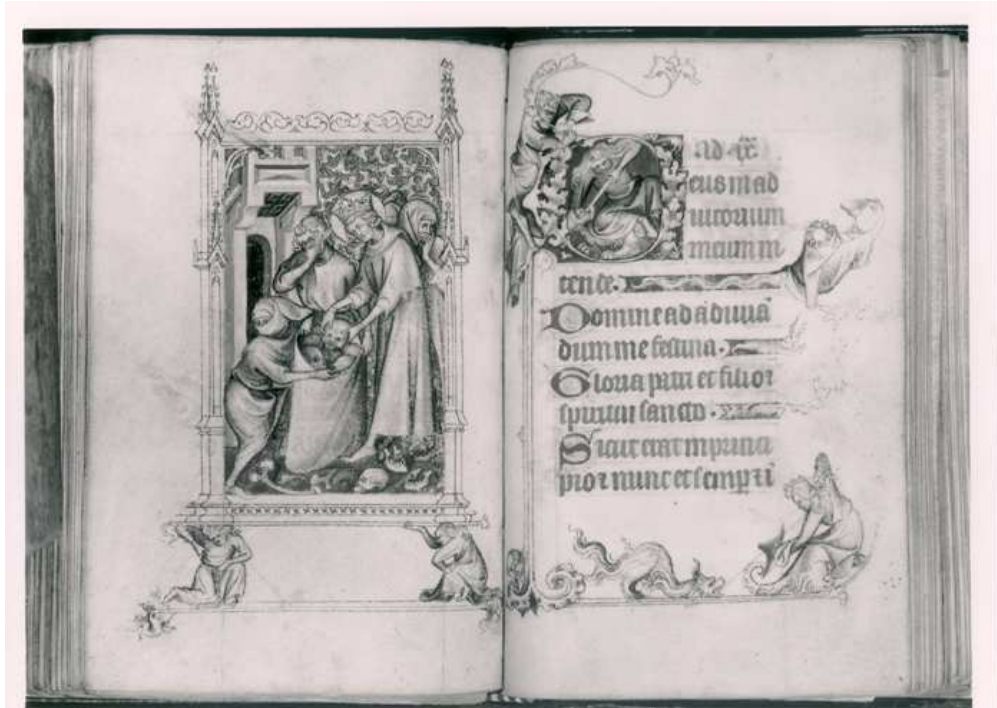 ad ix
eus in ad
iutorium
meum in
tende.
Domine ad adiuuā
dum me festina.
Gloria patri et filio ⁊
spiritui sancto.
Sicut erat in princi
pio ⁊ nunc et semꝑ ⁊ ī